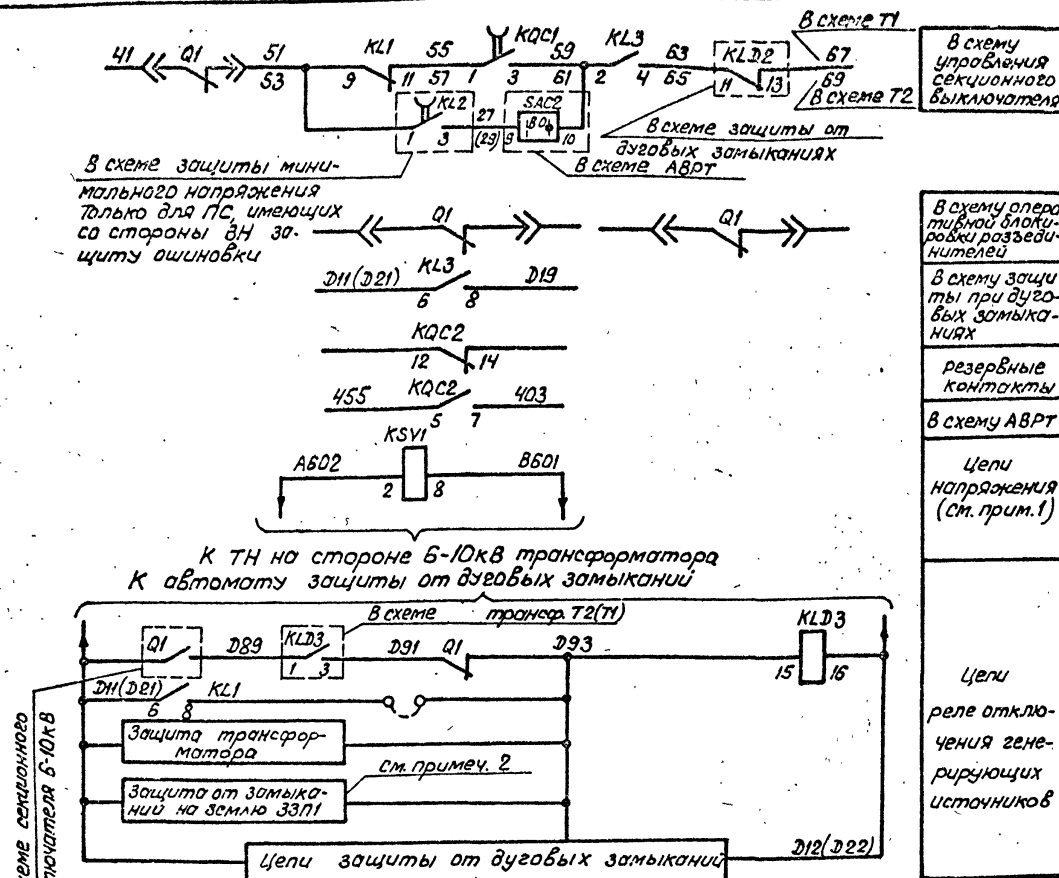 В схеме Т1
41 Q1 51 53 9 KL1 11 55 57 1 KQC1 3 59 61 2 KL3 4 63 65 KLD2 11 13 67 69
В схеме Т2
В схему
управления
секционного
выключателя
KL2 1 3 27 (29) 9 SAC2 ВО 10
В схеме защиты от
дуговых замыканиях
В схеме АВРТ
В схеме защиты мини-
мального напряжения
Только для ПС, имеющих
со стороны ВН за-
щиту ошиновки
Q1 Q1
В схему опера
тивной блоки-
ровки разъеди-
нителей
D11(D21) KL3 6 8 D19
В схему защи
ты при дуго-
вых замыка-
ниях
KQC2
12 14
резервные
контакты
455 KQC2 403
5 7
В схему АВРТ
KSV1
А602 В601
2 8
Цепи
напряжения
(см. прим. 1)
К ТН на стороне 6-10кВ трансформатора
К автомату защиты от дуговых замыканий
В схеме трансф. Т2(Т1)
Q1 D89 KLD3 D91 Q1 D93 KLD3
1 3 15 16
D11(D21) KL1
6 8
Защита трансфор-
матора
см. примеч. 2
Защита от замыка-
ний на землю ЗЗП1
Цепи защиты от дуговых замыканий
D12(D22)
Цепи
реле отклю-
чения гене-
рирующих
источников
схеме секционного
ключателя 6-10кВ